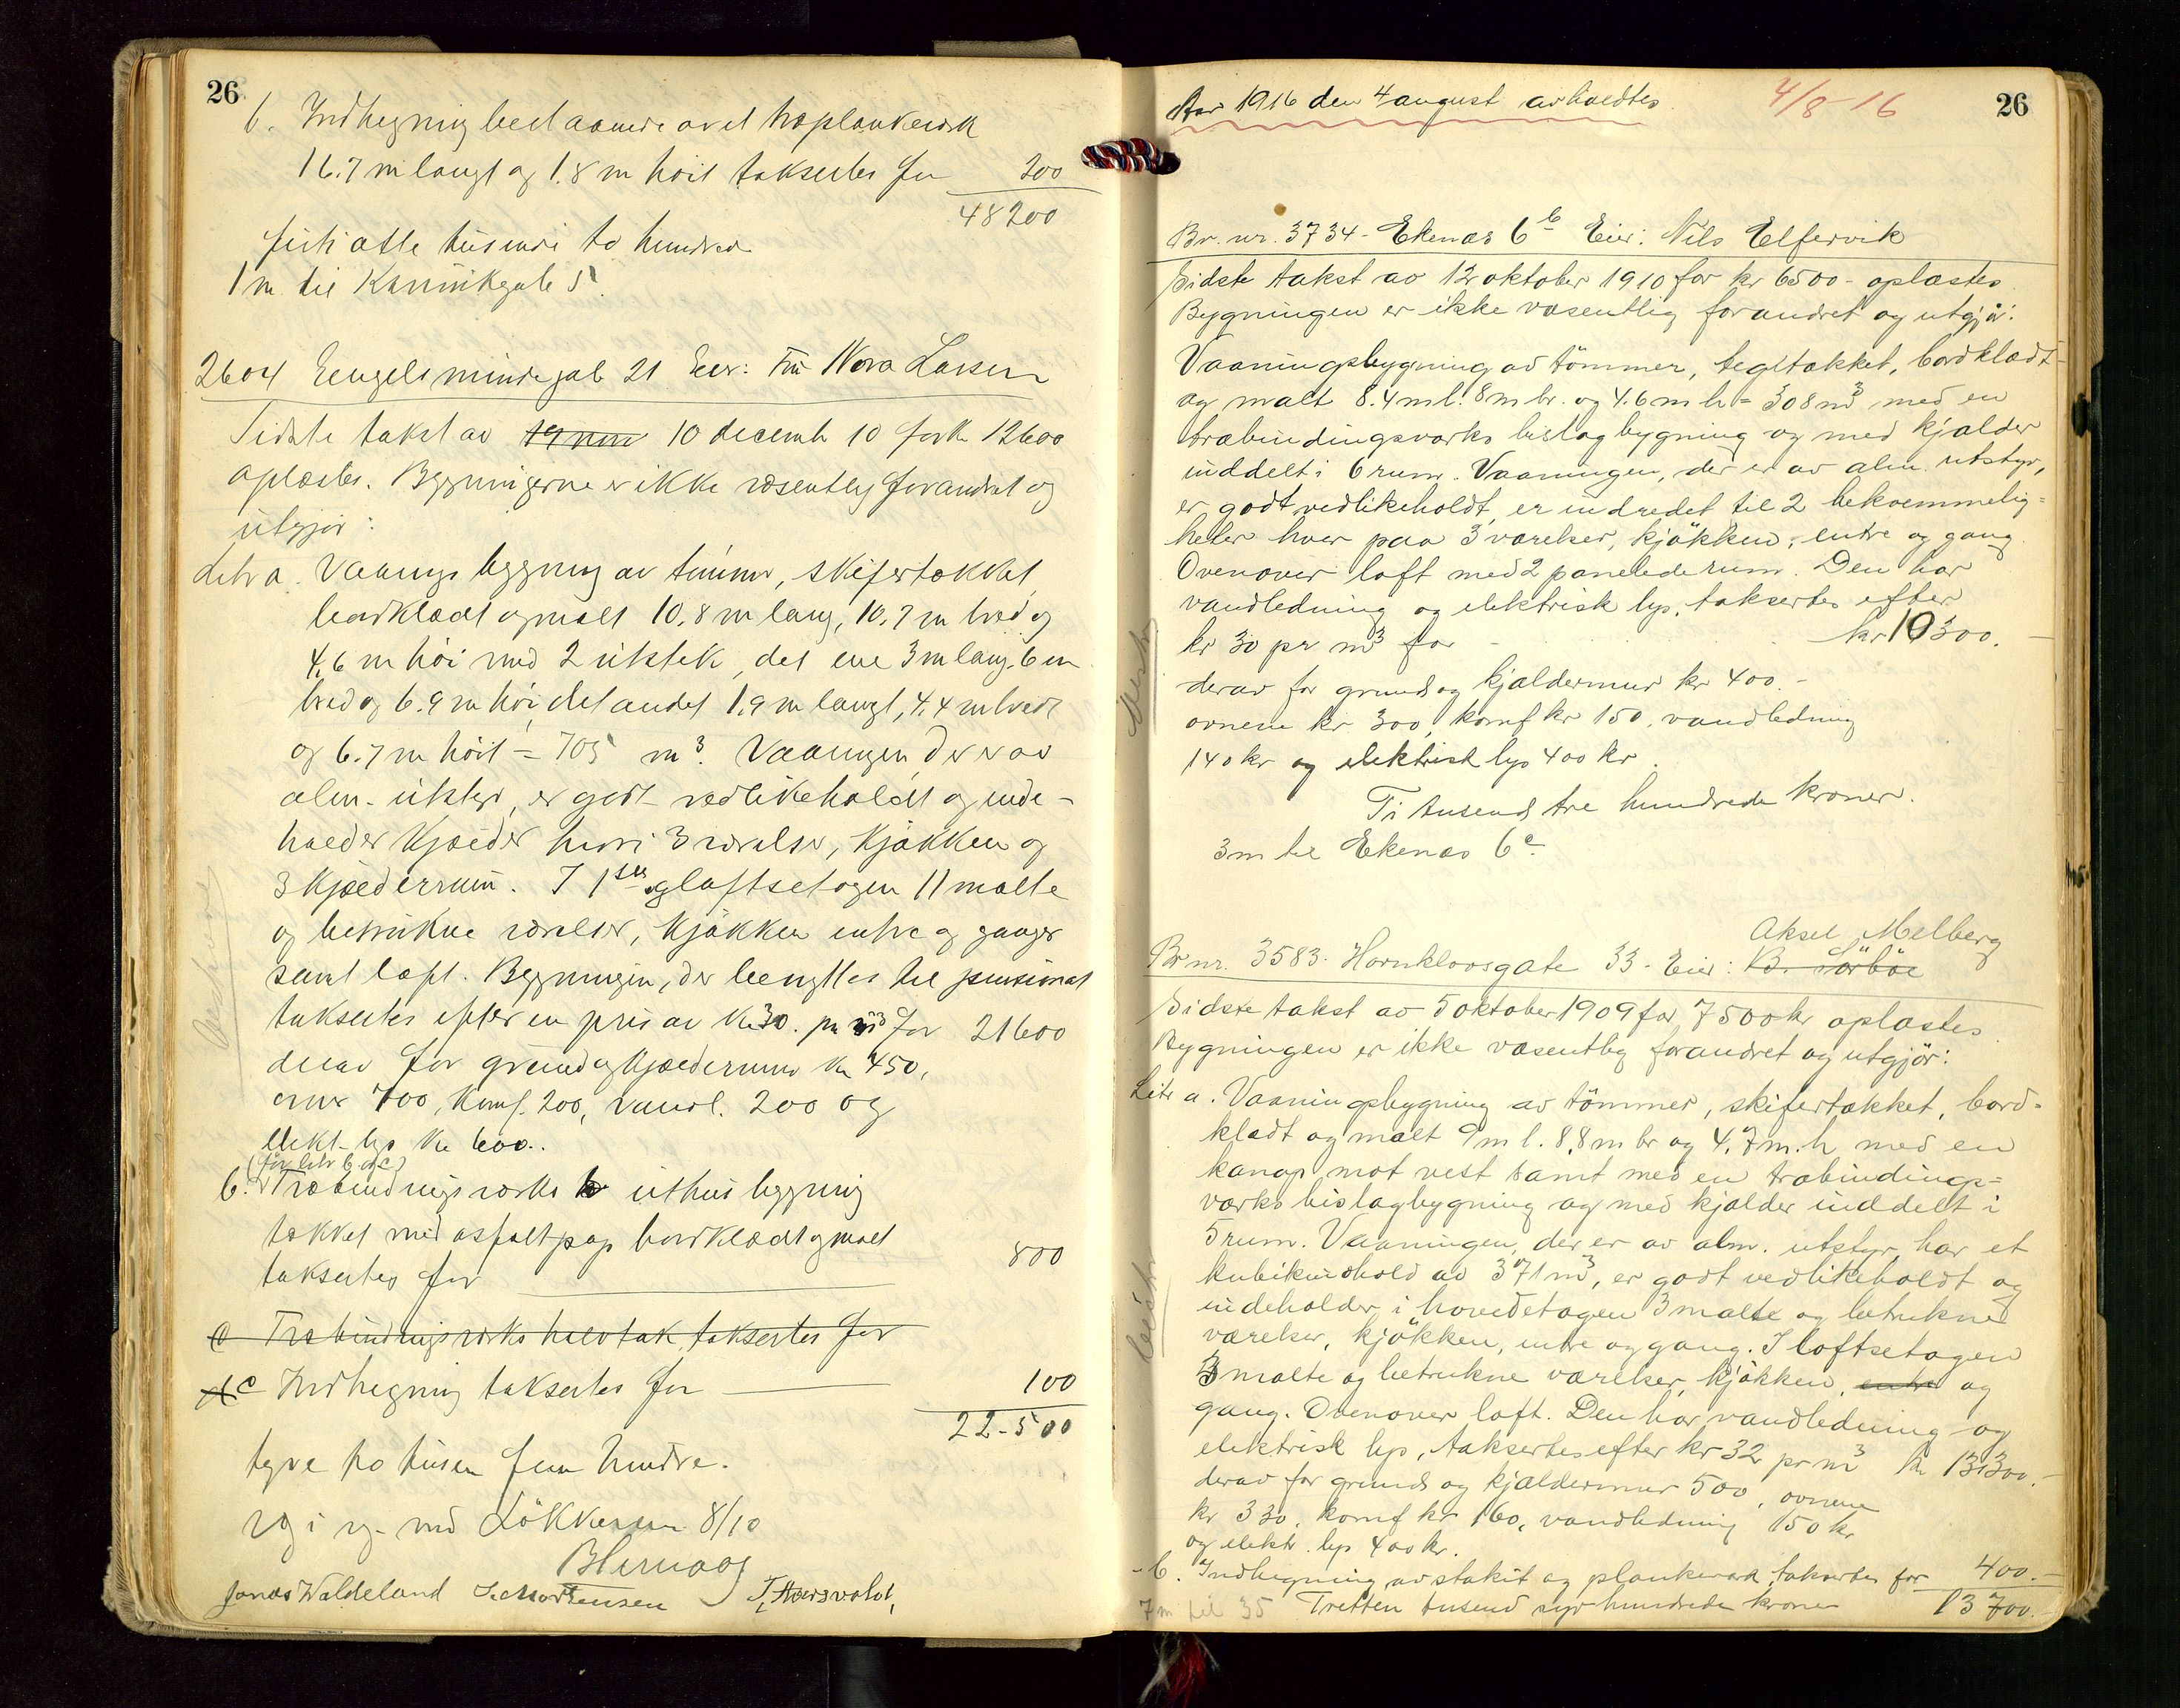 26
b. Indhegning bestaaende av et træplankeværk
16.7 m langt og 1.8 m höit taksertes for 200
48200
firti otte tusinde to hundrede
1 m til Kannikgate 5
2604 Engelsmindegate 21 Eier: Fru Nora Larsen
Sidste takst av 10 decembr 10 for kr 12600
oplæstes. Bygningerne er ikke væsentlig forandret og
utgjör:
Litr a. Vaaningsbygning av tömmer, skifertækket,
bordklædt og malt 10.8 m lang, 10.7 m bred og
4.6 m höi med 2 utstik, det ene 3 m lang, 6 m
bred og 6.9 m höi, det andet 1.9 m langt, 4.4 m bredt
og 6.7 m höit = 705 m³. Vaaningen, der er av
alm. utstyr, er godt vedlikeholdt og inde-
holder kjælder hvori 3 værelser, kjökken og
3 kjælderrum. I 1ste og loftsetagen 11 malte
og betrukne værelser, kjökken entre og ganger
samt loft. Bygningen, der benyttes til pensionat
taksertes efter en pris av kr 30. pr m³ for 21600
derav for grund og kjældermur kr 450,
ovner 700, komf. 200, vandl. 200 og
elekt. lys kr 600..
(för litr b og c)
b. Træbindingsværks uthusbygning
tækket med asfaltpap bordklædt og malt
taksertes for 800
c Træbindingsværks halvtak taksertes for
d c Indhegning taksertes for 100
22500
tyve to tusen fem hundre.
8/10
Jonas Waldeland
26
Aar 1916 den 4 august avholdtes 4/8 16
Br. nr. 3734 - Ekenæs 6b Eier: Nils Elfervik
Sidste takst av 12 oktober 1910 for kr 6500 - oplæstes
Bygningen er ikke væsentlig forandret og utgjör:
Vaaningsbygning av tömmer, tegltækket, bordklædt
og malt 8.4 m l. 8 m br. og 4.6 m h = 308 m³ med en
træbindingsværks bislagbygning og med kjælder
inddelt i 6 rum. Vaaningen, der er av alm. utstyr,
er godt vedlikeholdt, er indredet til 2 bekvemmelig=
heter hver paa 3 værelser, kjökken, entre og gang.
Ovenover loft med 2 panelede rum. Den har
vandledning og elektrisk lys, taksertes efter
kr 30 pr m³ for - kr 10300. -
derav for grund og kjældermur kr 400. -
ovnene kr 300, komf kr 150, vandledning
140 kr og elektrisk lys 400 kr.
Ti tusend tre hundrede kroner.
3 m til Ekenæs 6c.
Aksel Melberg
Br nr. 3583. Hornkloosgate 33 - Eier: B. Sörböe
Sidste takst av 5 oktober 1909 for 7500 kr oplæstes
Bygningen er ikke væsentlig forandret og utgjör:
Litr a. Vaaningsbygning av tömmer, skifertækket, bord-
klædt og malt 9 m l. 8,8 m br og 4.7 m. h med en
kanap mot vest samt med en træbindings=
værks bislagbygning og med kjælder inddelt i
5 rum. Vaaningen, der er av alm. utstyr, har et
kubikindhold av 371 m³, er godt vedlikeholdt og
indeholder i hovedetagen 3 malte og betrukne
værelser, kjökken, entre og gang. I loftsetagen
3 malte og betrukne værelser, kjökken, entre og
gang. Ovenover loft. Den har vandledning og
elektrisk lys, taksertes efter kr 32 pr m³ kr 13300. -
derav for grund og kjældermur 500, ovnene
kr 330, komf kr 160, vandledning 150 kr
og elektr. lys 400 kr.
- b. Indhegning av stakit og plankeværk taksertes for 400. -
7 m til 35 Tretten tusend syv hundrede kroner 13700. -